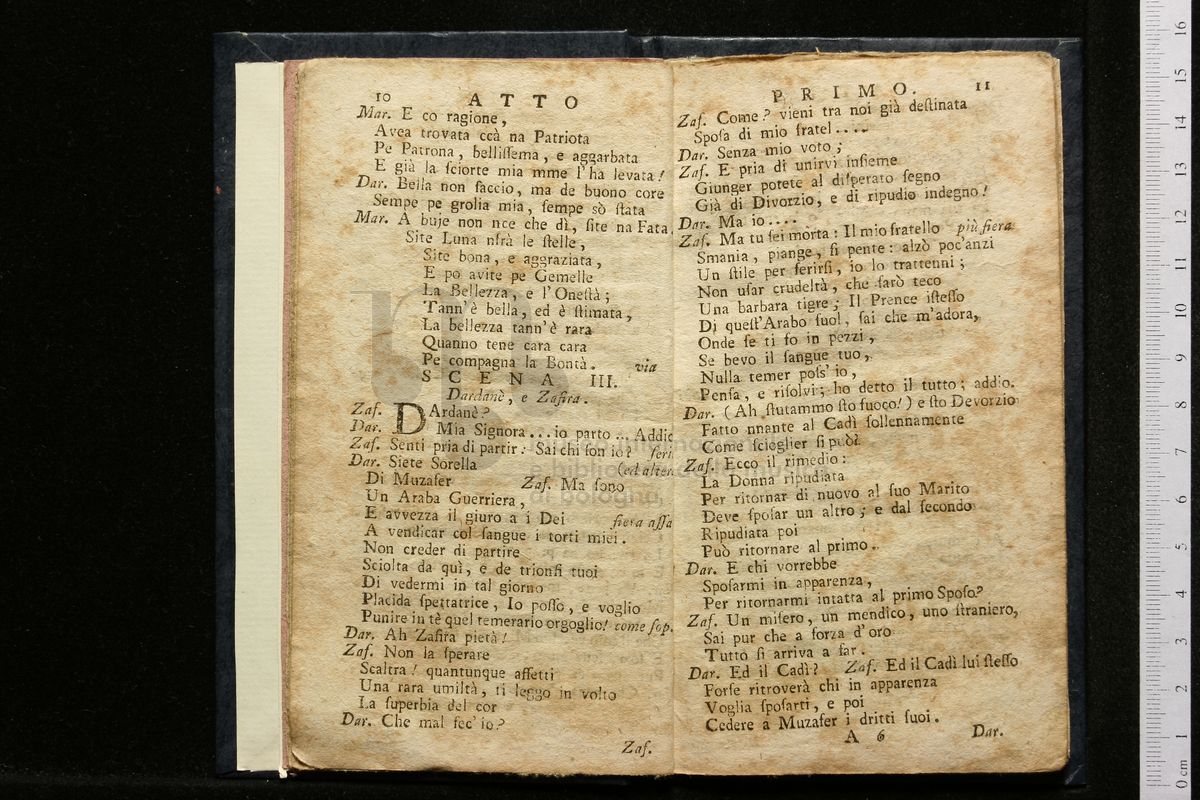 10 ATTO
Mar. E co ragione,
Avea trovata ccà na Patriota
Pe Patrona, belliſſema, e aggarbata
E già la ſciorte mia mme l'ha levata!
Dar. Bella non ſaccio, ma de buono core
Sempe pe grolia mia, ſempe sò ſtata
Mar. A buje non nce che dì, ſite na Fata.
Site Luna nfrà le ſtelle,
Site bona, e aggraziata,
E po avite pe Gemelle
La Bellezza, e l'Oneſtà;
Tann'è bella, ed è ſtimata,
La bellezza tann'è rara
Quanno tene cara cara
Pe compagna la Bontà. via
SCENA III.
Dardanè, e Zafira.
Zaf. DArdanè?
Dar. Mia Signora...io parto... Addio
Zaf. Senti pria di partir: Sai chi ſon io? ſeri
Dar. Siete Sorella (ed alter
Di Muzafer Zaf. Ma ſono
Un Araba Guerriera,
E avvezza il giuro a i Dei fiera aſſa
A vendicar col ſangue i torti miei.
Non creder di partire
Sciolta da quì, e de trionfi tuoi
Di vedermi in tal giorno
Placida ſpettatrice, Io poſſo, e voglio
Punire in tè quel temerario orgoglio! come ſop.
Dar. Ah Zafira pietà!
Zaf. Non la ſperare
Scaltra! quantunque affetti
Una rara umiltà, ti leggo in volto
La ſuperbia del cor
Dar. Che mal fec'io?
Zaf.
PRIMO. 11
Zaf. Come? vieni tra noi già deſtinata
Spoſa di mio fratel....
Dar. Senza mio voto;
Zaf. E pria di unirvi inſieme
Giunger potete al diſperato ſegno
Già di Divorzio, e di ripudio indegno!
Dar. Ma io....
Zaf. Ma tu ſei morta: Il mio fratello più fiera
Smania, piange, ſi pente: alzò poc'anzi
Un ſtile per ferirſi, io lo trattenni;
Non uſar crudeltà, che ſarò teco
Una barbara tigre; Il Prence iſteſſo
Di queſt'Arabo ſuol, ſai che m'adora,
Onde ſe ti fo in pezzi,
Se bevo il ſangue tuo,
Nulla temer poſs'io,
Penſa, e riſolvi; ho detto il tutto; addio.
Dar. (Ah ſtutammo ſto fuoco!) e ſto Devorzio
Fatto nnante al Cadì ſollennamente
Come ſcioglier ſi può?
Zaf. Ecco il rimedio:
La Donna ripudiata
Per ritornar di nuovo al ſuo Marito
Deve ſpoſar un altro; e dal ſecondo
Ripudiata poi
Può ritornare al primo.
Dar. E chi vorrebbe
Spoſarmi in apparenza,
Per ritornarmi intatta al primo Spoſo?
Zaf. Un miſero, un mendico, uno ſtraniero,
Sai pur che a forza d'oro
Tutto ſi arriva a far.
Dar. Ed il Cadì? Zaf. Ed il Cadì lui ſteſſo
Forſe ritroverà chi in apparenza
Voglia ſpoſarti, e poi
Cedere a Muzafer i dritti ſuoi.
A 6 Dar.